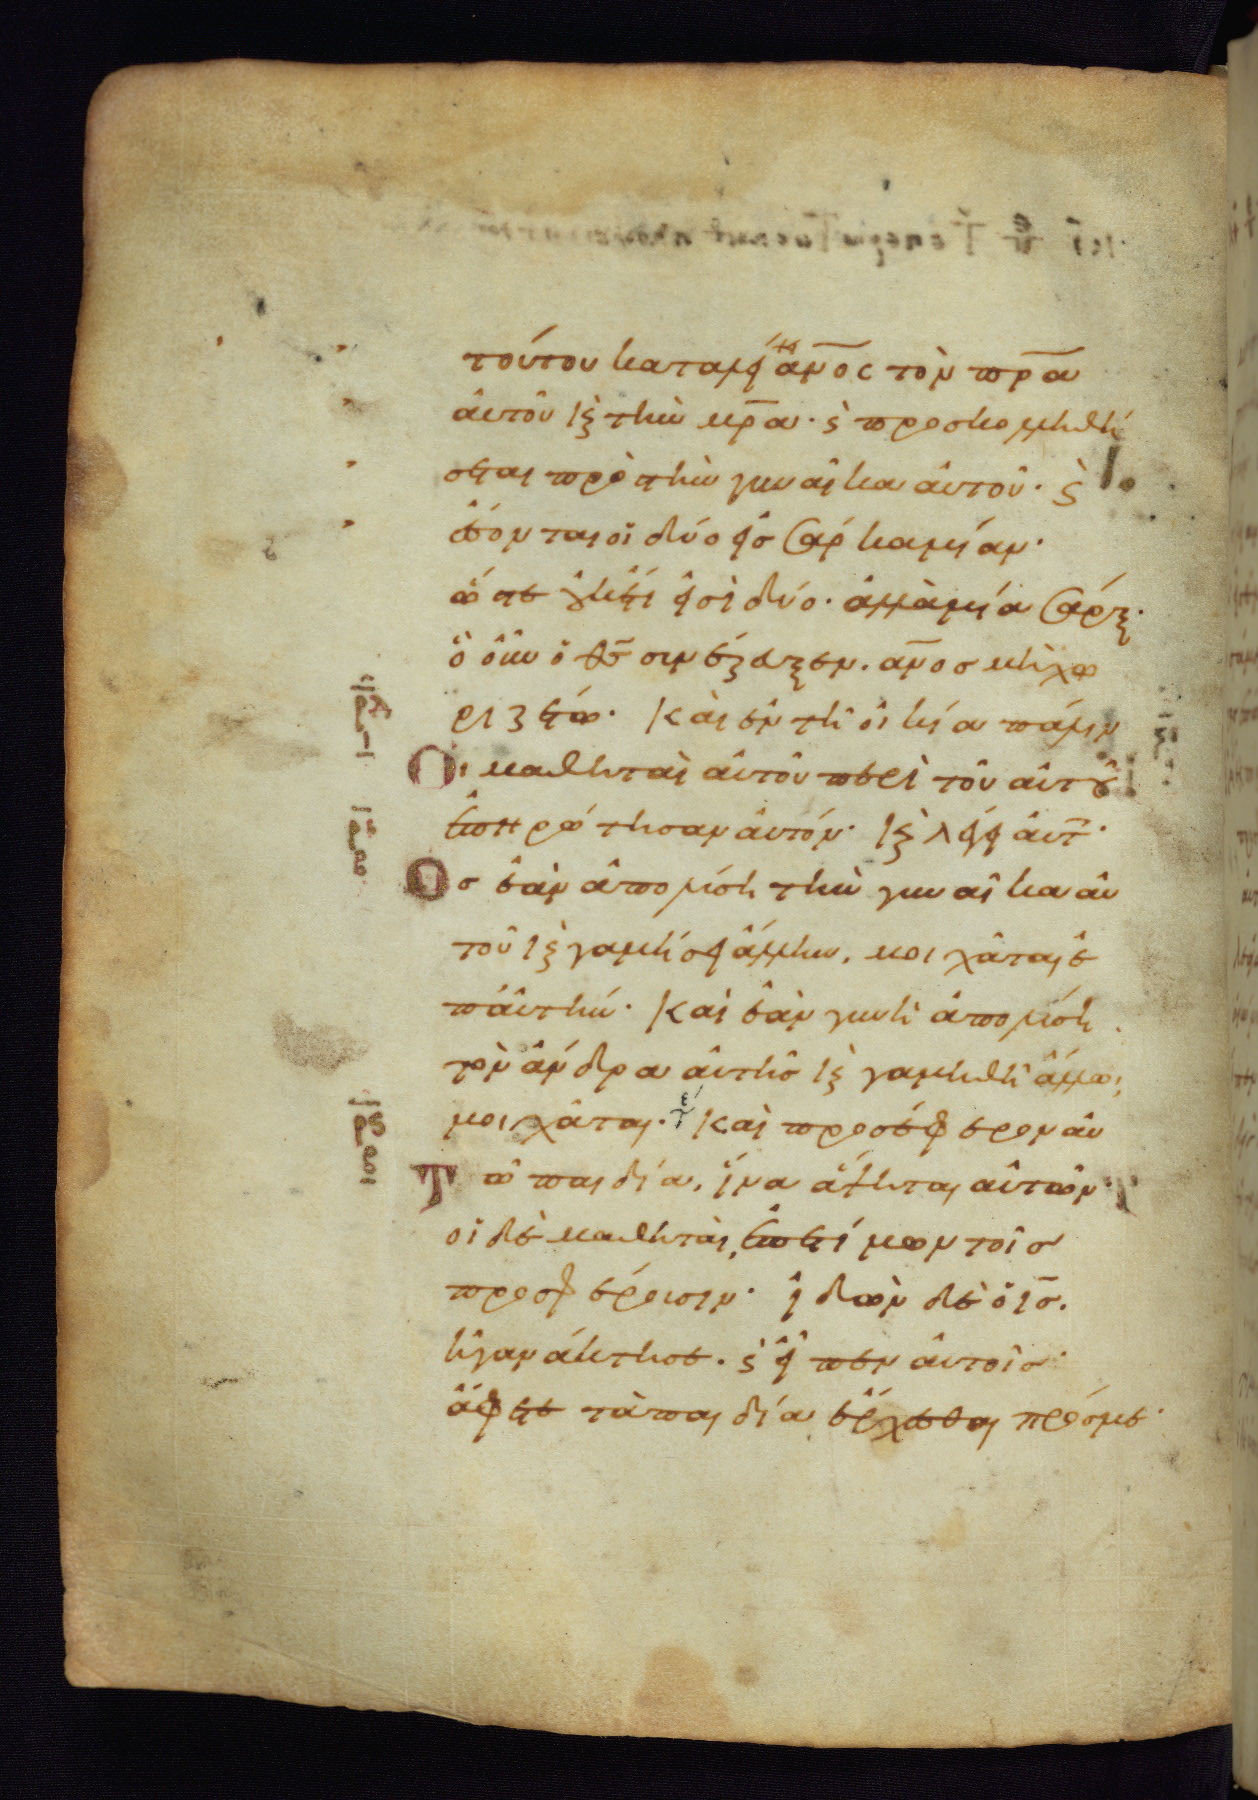 τούτου καταλείψει ἄν̅ος τὸν πρ̅α
αὐτοῦ κ̀ τὴν μρ̅α· κ̀ προσκολληθή
σεται πρὸς τὴν γυναῖκα αὐτοῦ· κ̀
ἔσονται οἱ δύο εἰς σάρκα μίαν·
ὥστε οὐκέτι εἰσὶ δύο· ἀλλὰ μία σάρξ·
ὃ οὖν ὁ θς̅ συνέζευξεν. αν̅ος μὴ χω
ριζέτω· Καὶ ἐν τῆ οἰκία πάλιν
Οι μαθηταὶ αὐτοῦ περὶ τοῦ αὐτοῦ
ἐπηρώτησαν αὐτόν· κ̀ λέγει αὐτ̅·
Ος ἐὰν ἀπολύση τὴν γυναῖκα αὐ
τοῦ κ̀ γαμήσει ἄλλην, μοιχᾶται ἐ
π αὐτήν· Καὶ ἐὰν γυνὴ ἀπολύση
τὸν ἄνδρα αὐτῆς κ̀ γαμηθῆ ἄλλω,
μοιχᾶται· Καὶ προσέφερον αὐ
Τῶ παιδία, ἵνα ἅψηται αὐτῶν·
οἱ δὲ μαθηταὶ, ἐπετίμων τοῖς
προσφέρουσιν· ἰδὼν δὲ ὁ ις̅.
ἠγανάκτησε. κ̀ εἶπεν αὐτοῖς·
ἄφετε τὰ παιδία ἔρχεσθαι πρός με·